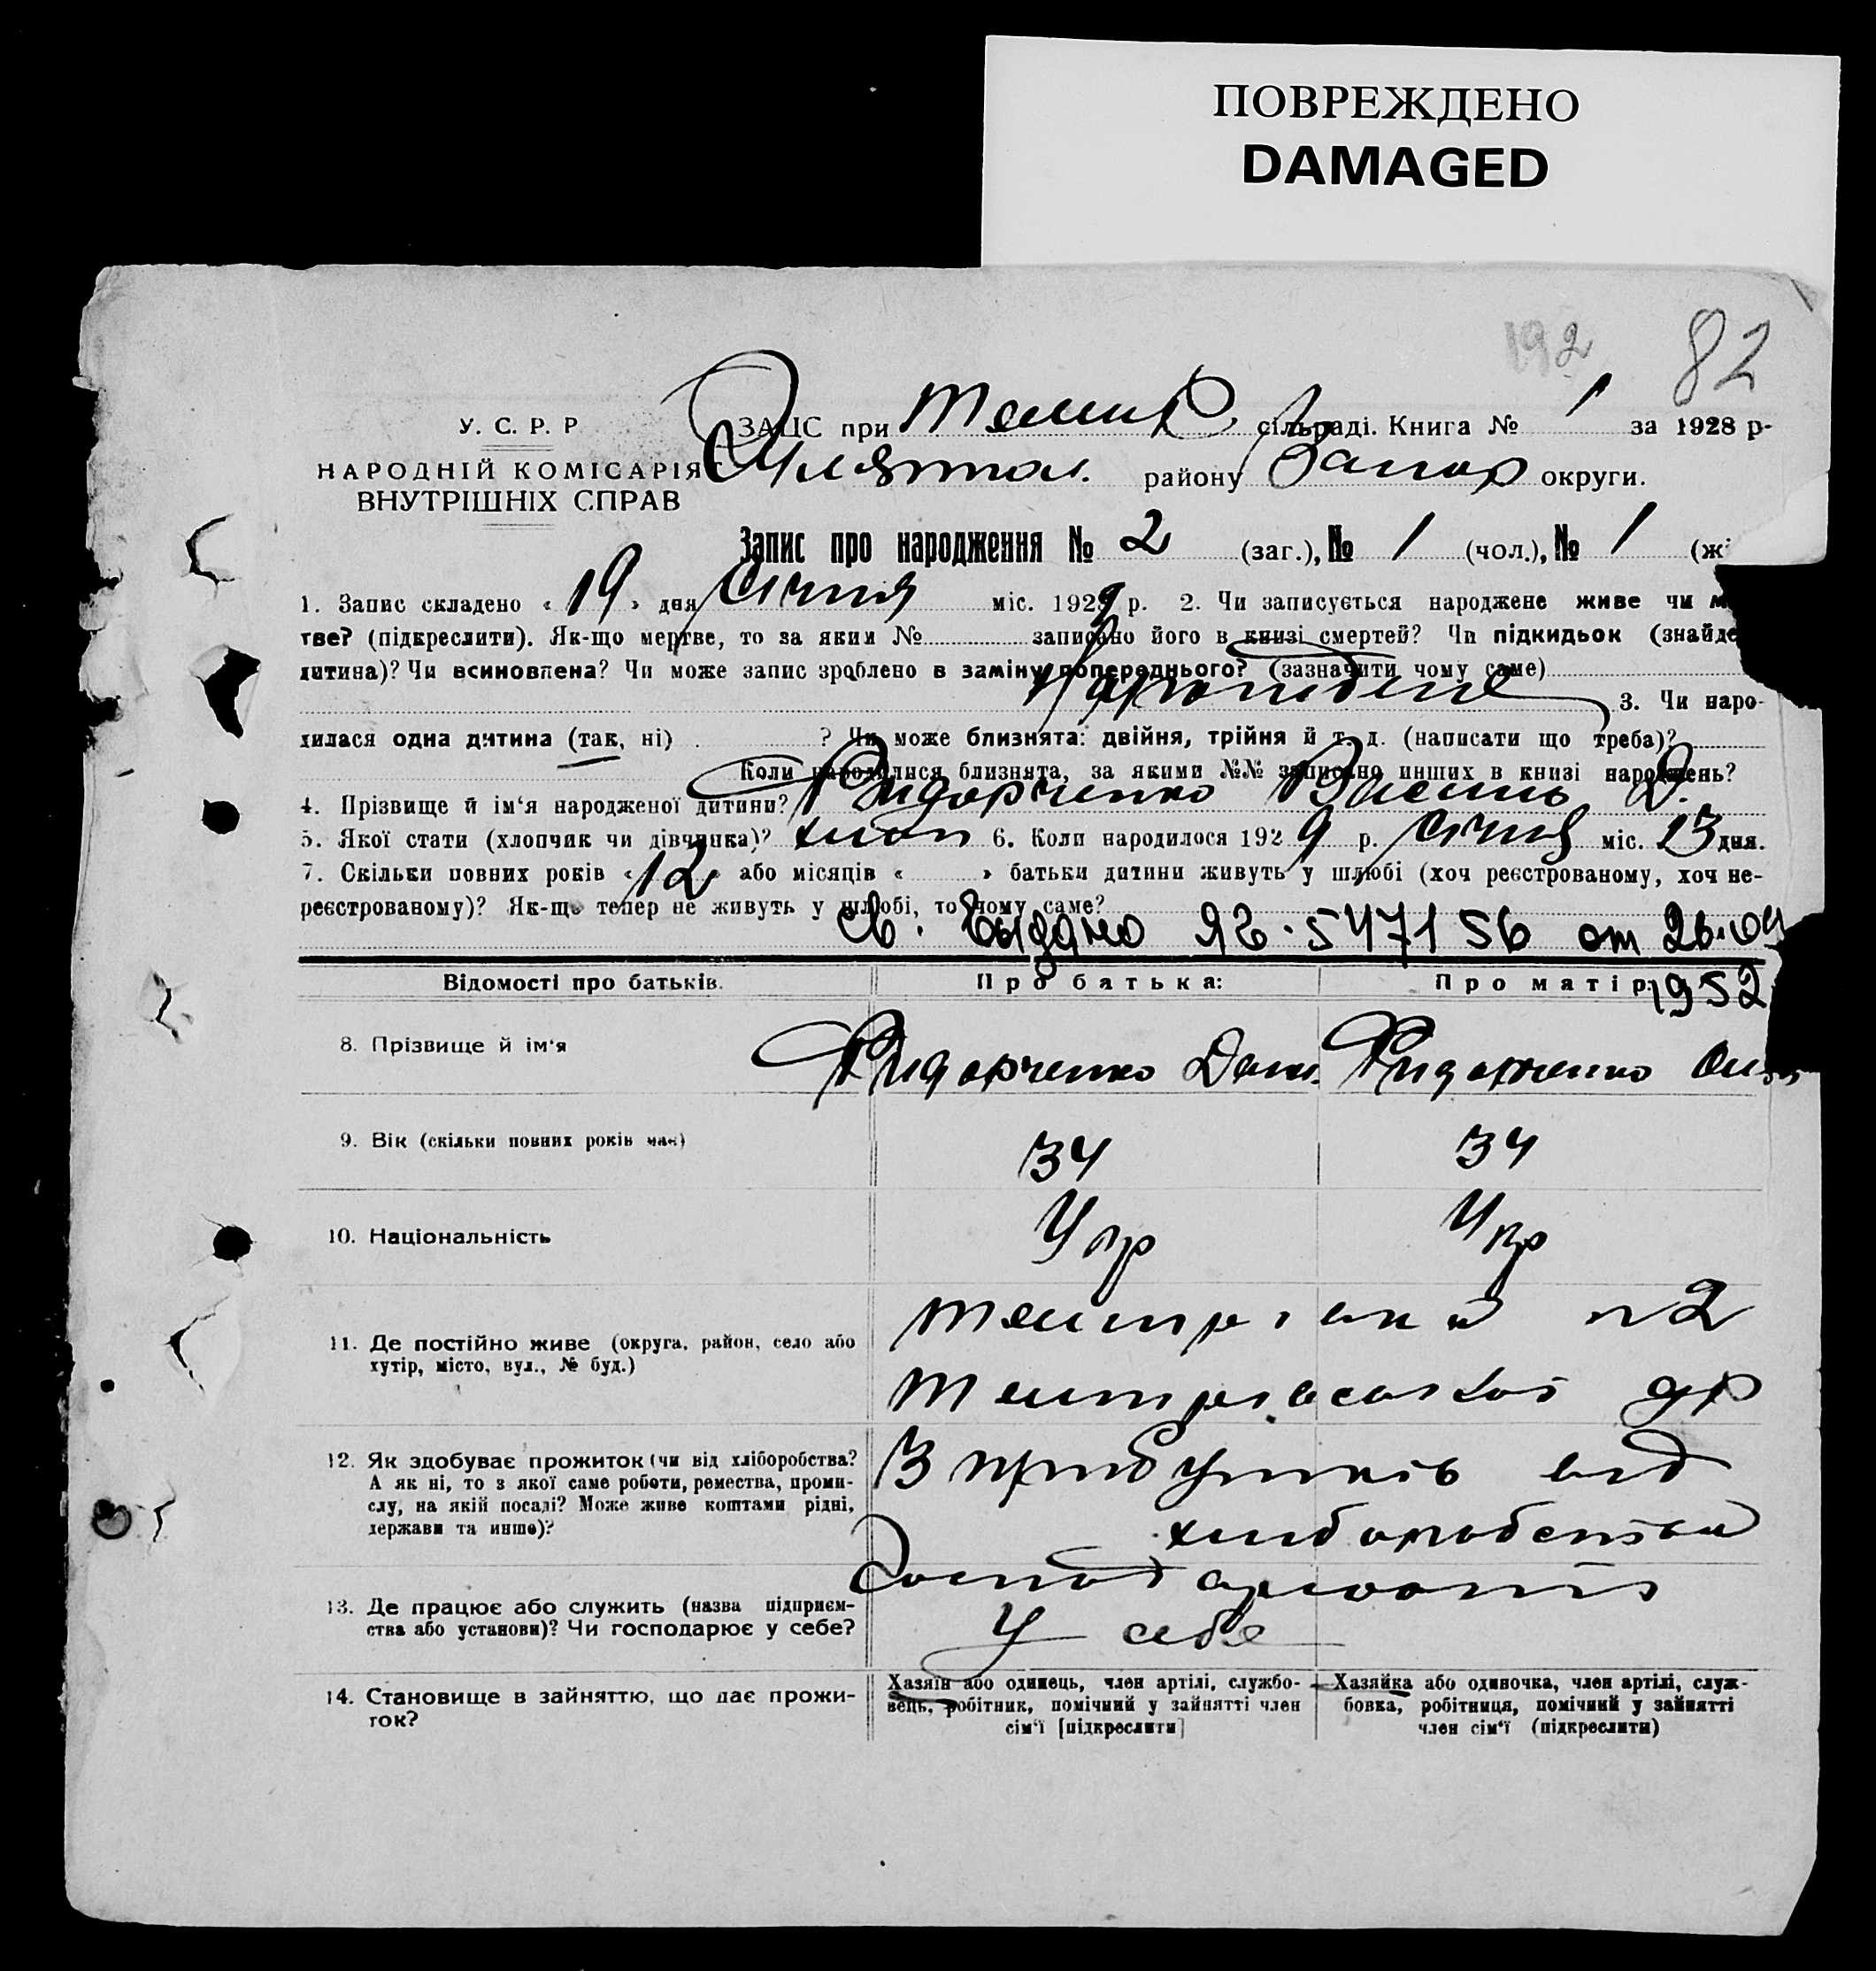 ПОВРЕЖДЕНО
DAMAGED
192 82
У. С. Р. Р
НАРОДНІЙ КОМІСАРІЯТ
ВНУТРІШНІХ СПРАВ
ЗАЦС при сільраді. Книга № 1 за 1928 р-
району Запор округи.
Запис про народження № 2 (заг.), № 1 (чол.), № 1
1. Запис складено « 19 » дня Січня міс. 1929 р. 2. Чи записується народжене живе чи
тве? (підкреслити). Як-що мертве, то за яким № записано його в книзі смертей? Чи підкидьок (знайде
дитина)? Чи всиновлена? Чи може запис зроблено в заміну попереднього? (зазначити чому саме)
3. Чи наро-
дилася одна дитина (так, ні) ? Чи може близнята: двійня, трійня й т. д. (написати що треба)?
Коли народилися близнята, за якими №№ записано инших в книзі народжень?
4. Прізвище й ім'я народженої дитини? Сидорченко Василь Д.
5. Якої стати (хлопчик чи дівчинка)? хлоп 6. Коли народилося 1929 р. Січня міс. 13 дня.
7. Скільки повних років « 12 » або місяців « » батьки дитини живуть у шлюбі (хоч реєстрованому, хоч не-
реєстрованому)? Як-що тепер не живуть у шлюбі, то чому саме?
Св. выдано ЯЄ. 547156 от 26.04
1952
Відомості про батьків. Про батька: Про матір:
8. Прізвище й ім'я Сидорченко Дан. Сидорченко
9. Вік (скільки повних років має) 34 34
10. Національність Укр Укр
11. Де постійно живе (округа, район, село або
хутір, місто, вул., № буд.)
12. Як здобуває прожиток (чи від хліборобства?
А як ні, то з якої саме роботи, ремества, проми-
слу, на якій посаді? Може живе коштами рідні,
держави та инше)?
З прибутків від
хліборобства
13. Де працює або служить (назва підприєм-
ства або установи)? Чи господарює у себе?
Господарюють
У себе
14. Становище в зайняттю, що дає прожи-
ток?
Хазяїн або одинець, член артілі, службо-
вець, робітник, помічний у зайнятті член
сім'ї [підкреслити]
Хазяйка або одиночка, член артілі, служ-
бовка, робітниця, помічний у зайнятті
член сім'ї (підкреслити)